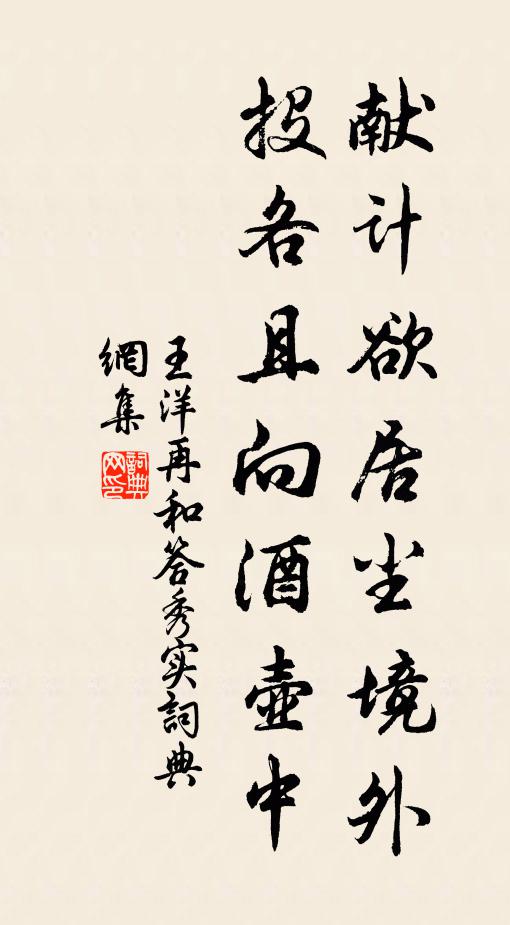 献计欲居尘境外
投各且向酒壺中
王洋再和答秀实詞典
網集
詞典
网印